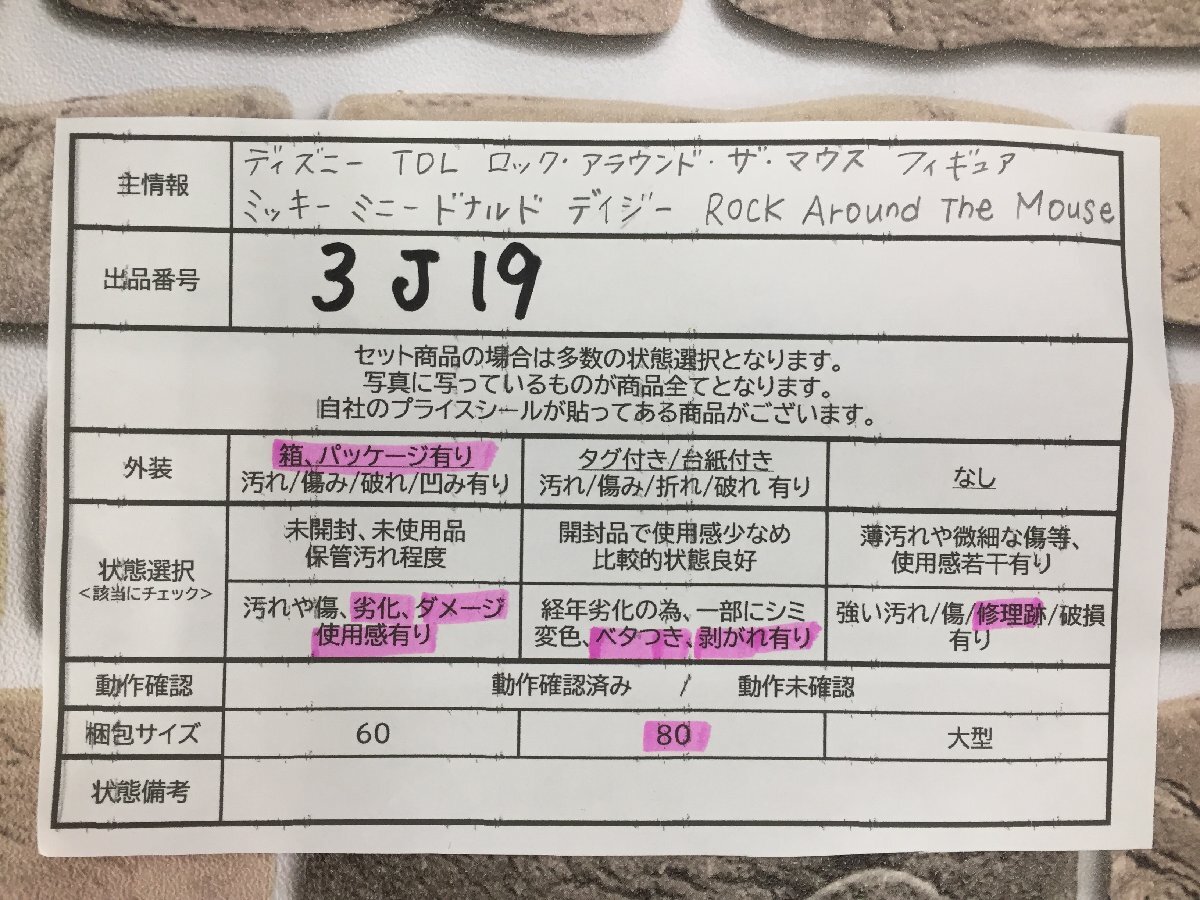 主情報
ディズニー TDL ロック・アラウンド・ザ・マウス フィギュア
ミッキー ミニー ドナルド デイジー ROCK Around The Mouse
出品番号
3 J 19
セット商品の場合は多数の状態選択となります。
写真に写っているものが商品全てとなります。
自社のプライスシールが貼ってある商品がございます。
外装
箱、パッケージ有り
汚れ/傷み/破れ/凹み有り
タグ付き/台紙付き
汚れ/傷み/折れ/破れ 有り
なし
状態選択
<該当にチェック>
未開封、未使用品
保管汚れ程度
開封品で使用感少なめ
比較的状態良好
薄汚れや微細な傷等、
使用感若干有り
汚れや傷、劣化、ダメージ
使用感有り
経年劣化の為、一部にシミ
変色、ベタつき、剥がれ有り
強い汚れ/傷/修理跡/破損
有り
動作確認
動作確認済み / 動作未確認
梱包サイズ
60
80
大型
状態備考